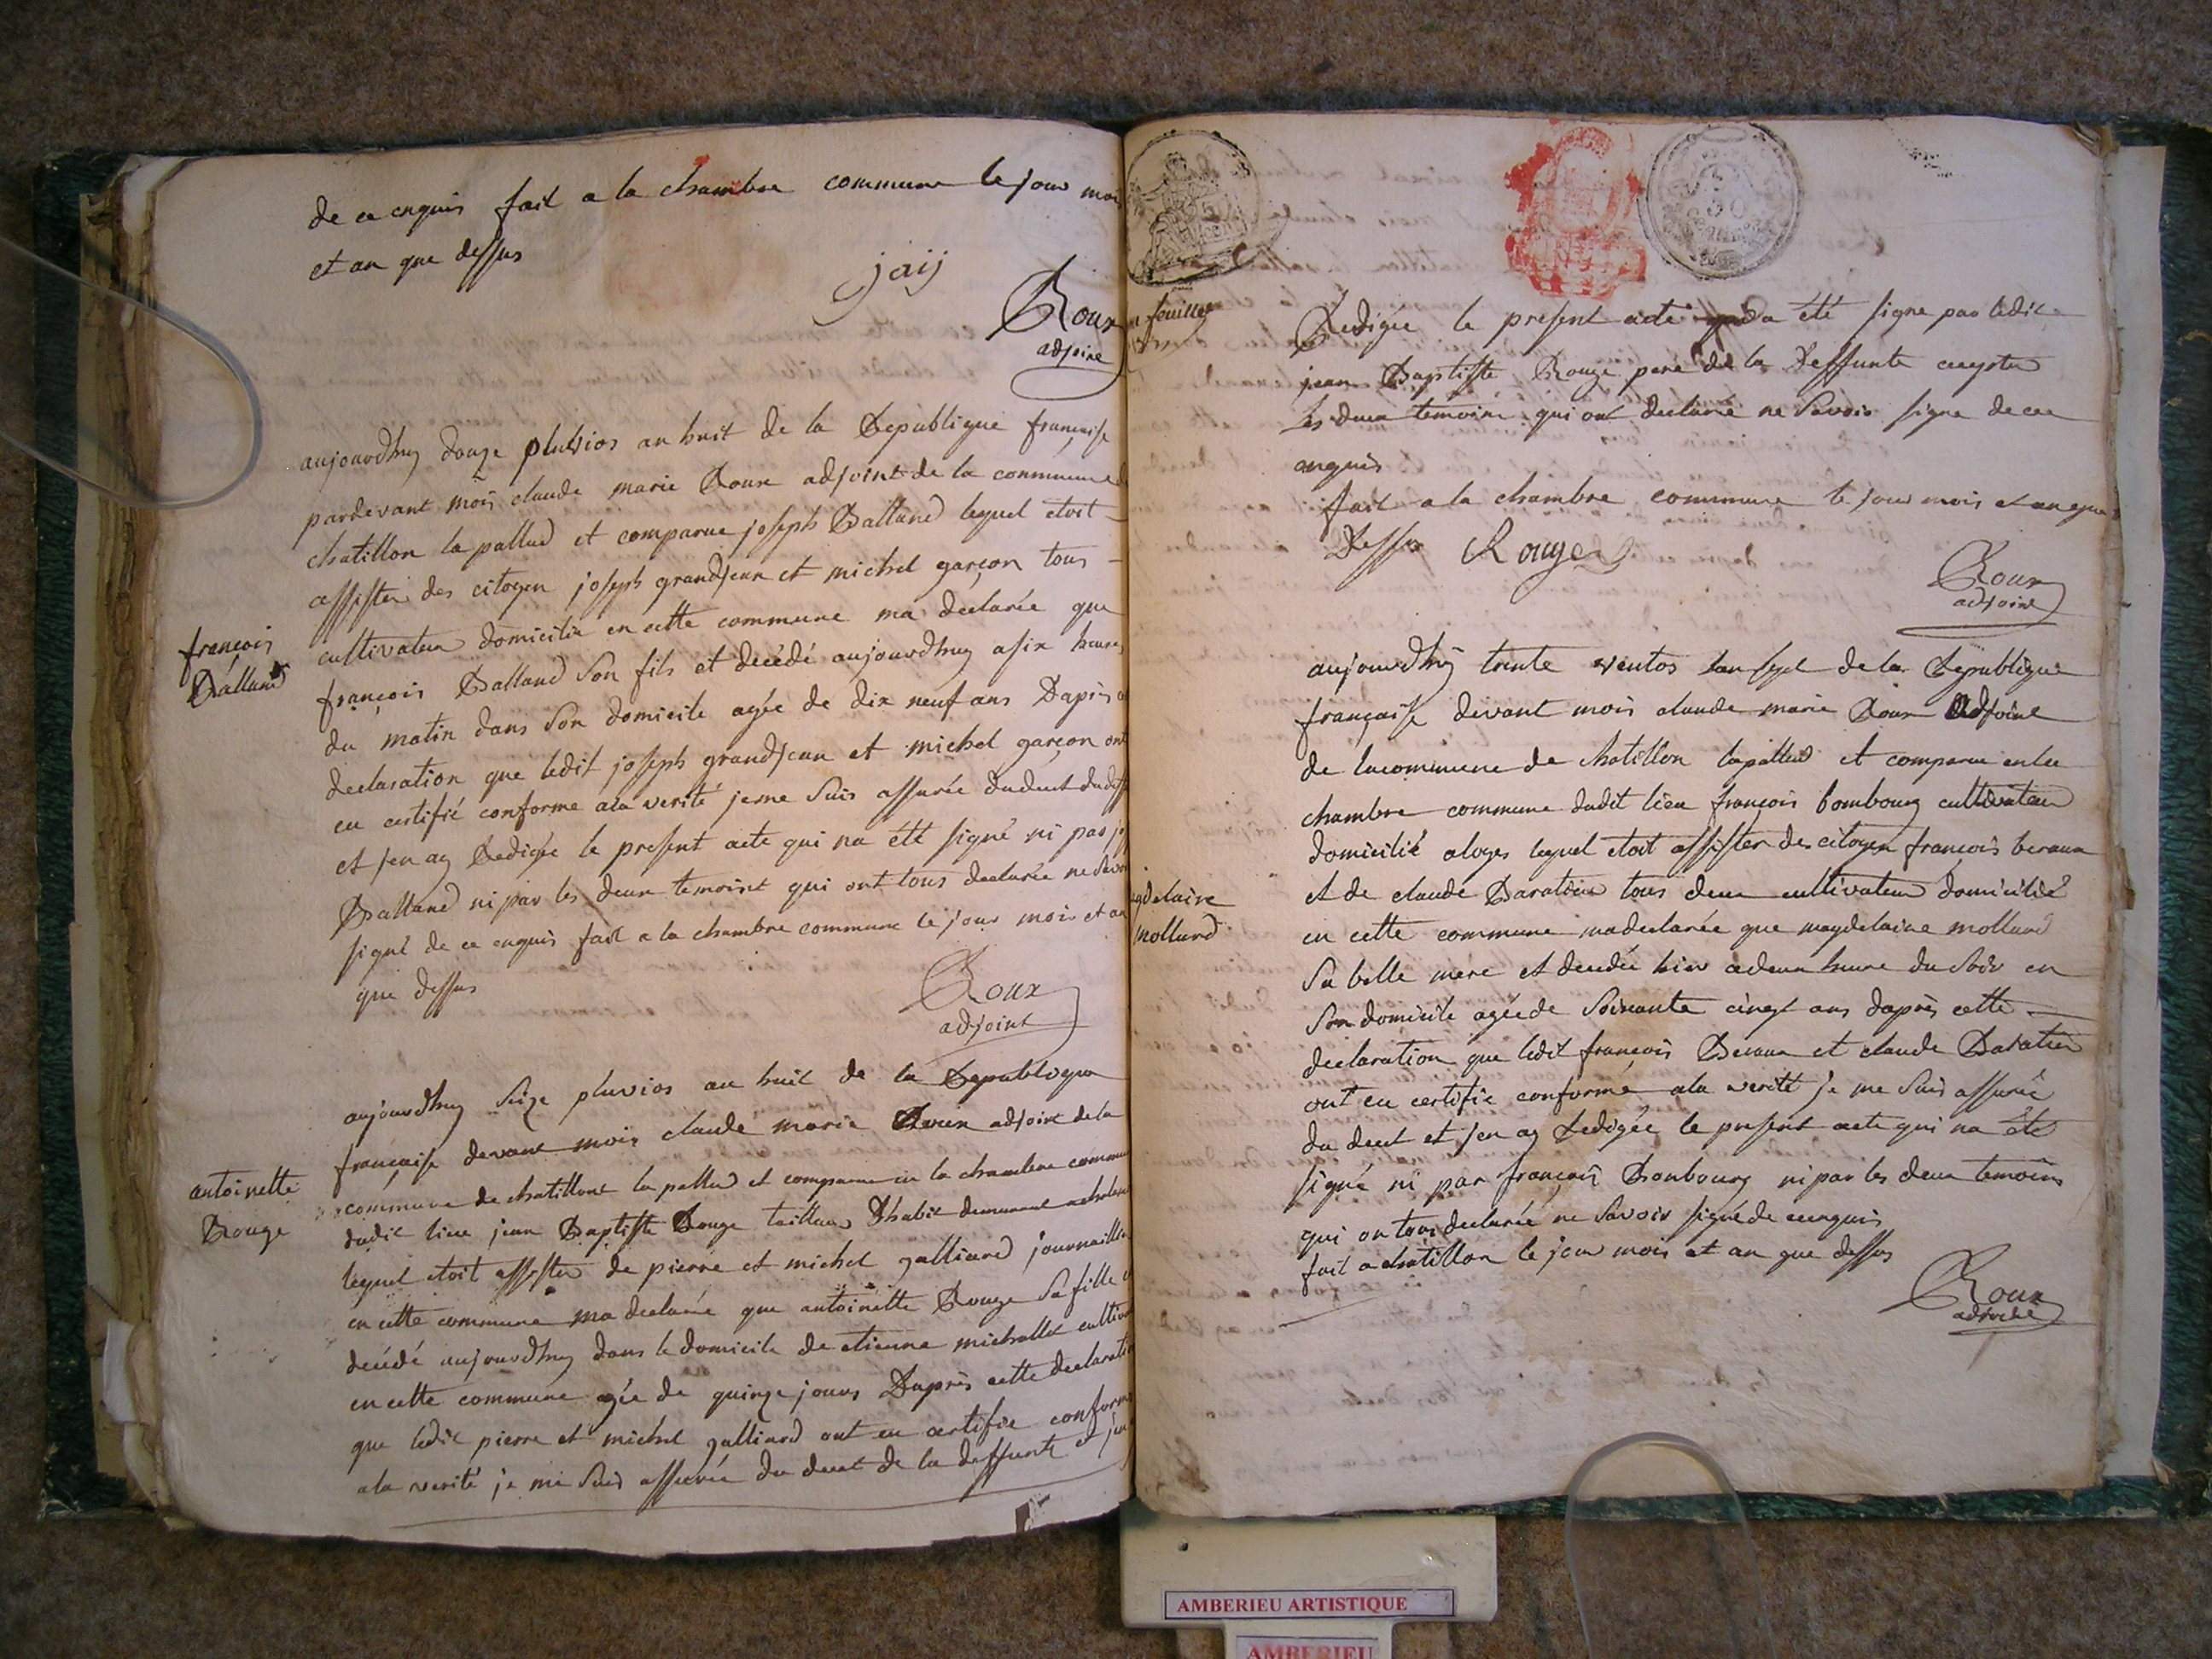 de ce enquis fait a la chambre commune le jour mois
et an que dessus
jaij
Roux
adjoint
aujourdhuy douze pluvios an huit de la Republique française
pardevant mois claude marie Roux adjoint de la commune
chatillon la pallud et comparue joseph Balland lequel etoit
assister des citoyen joseph grandjean et michel garçon tous
cultivateur domicilie en cette commune ma declarée que
françois
Balland
françois Balland son fils et decédé aujourdhuy a six heures
du matin dans son domicile agée de dix neuf ans Daprès
declaration que ledit joseph grandjean et michel garçon ont
eu certifié conforme ala verité je me suis assurée dudeest
et jen ay Redigée le present acte qui na été signé ni par
Balland ni par les deux temoint qui ont tous declarée ne
signé de ce enquis fait a la chambre commune le jour mois et an
que dessus
Roux
adjoint
aujourdhuy seize pluvios an huit de la Republique
française devant mois claude marie Roux adjoint de la
antoinette
Rouge
commune de chatillont la pallud et comparue en la chambre
dudit lieu jean Baptiste Rouge tailleur Dhabit demurant
lequel etoit assister de pierre et michel galliard
en cette commune ma declarée que antoinette Rouge sa fille
decédé aujourdhuy dans le domicile de etienne michallet
en cette commune agée de quinze jours Daprès cette
que ledit pierre et michel galliard ont eu certifie
ala verité je me suis assurée du deest de la deffunte et
feuillet
Redigée le present acte été signe par ledit
jean Baptiste Rouge pere de la Deffunte
les deux temoins qui ont declaré ne savoir signe de ce
enquis
fait a la chambre commune le jour mois et an que
Dessus Rouge
Roux
adjoint
aujourdhuy trente ventos de la Republique
française devant mois claude marie Roux adjoint
de lacommune de chatillon lapallud et comparue en la
chambre commune dudit lieu françois bombourg cultivateur
domicilié aloyes lequel etoit assister des citoyen françois
mollard
et de claude tous deux cultivateur domicilié
en cette commune madeclarée que magdelaine mollard
sa belle mere et decedée hier adeux heure du soir en
son domicile agée de soixante cinq ans daprès cette
declaration que ledit françois et claude
ont eu certifie conforme ala verité je me suis assurée
du deest et jen ay Redigée le present acte qui na été
signé ni par françois Bonbourg ni par les deux temoins
qui on tous declarée ne savoir signé de ce enquis
fait a chatillon le jour mois et an que dessus
Roux
adjoint
AMBERIEU ARTISTIQUE
AMBERIEU